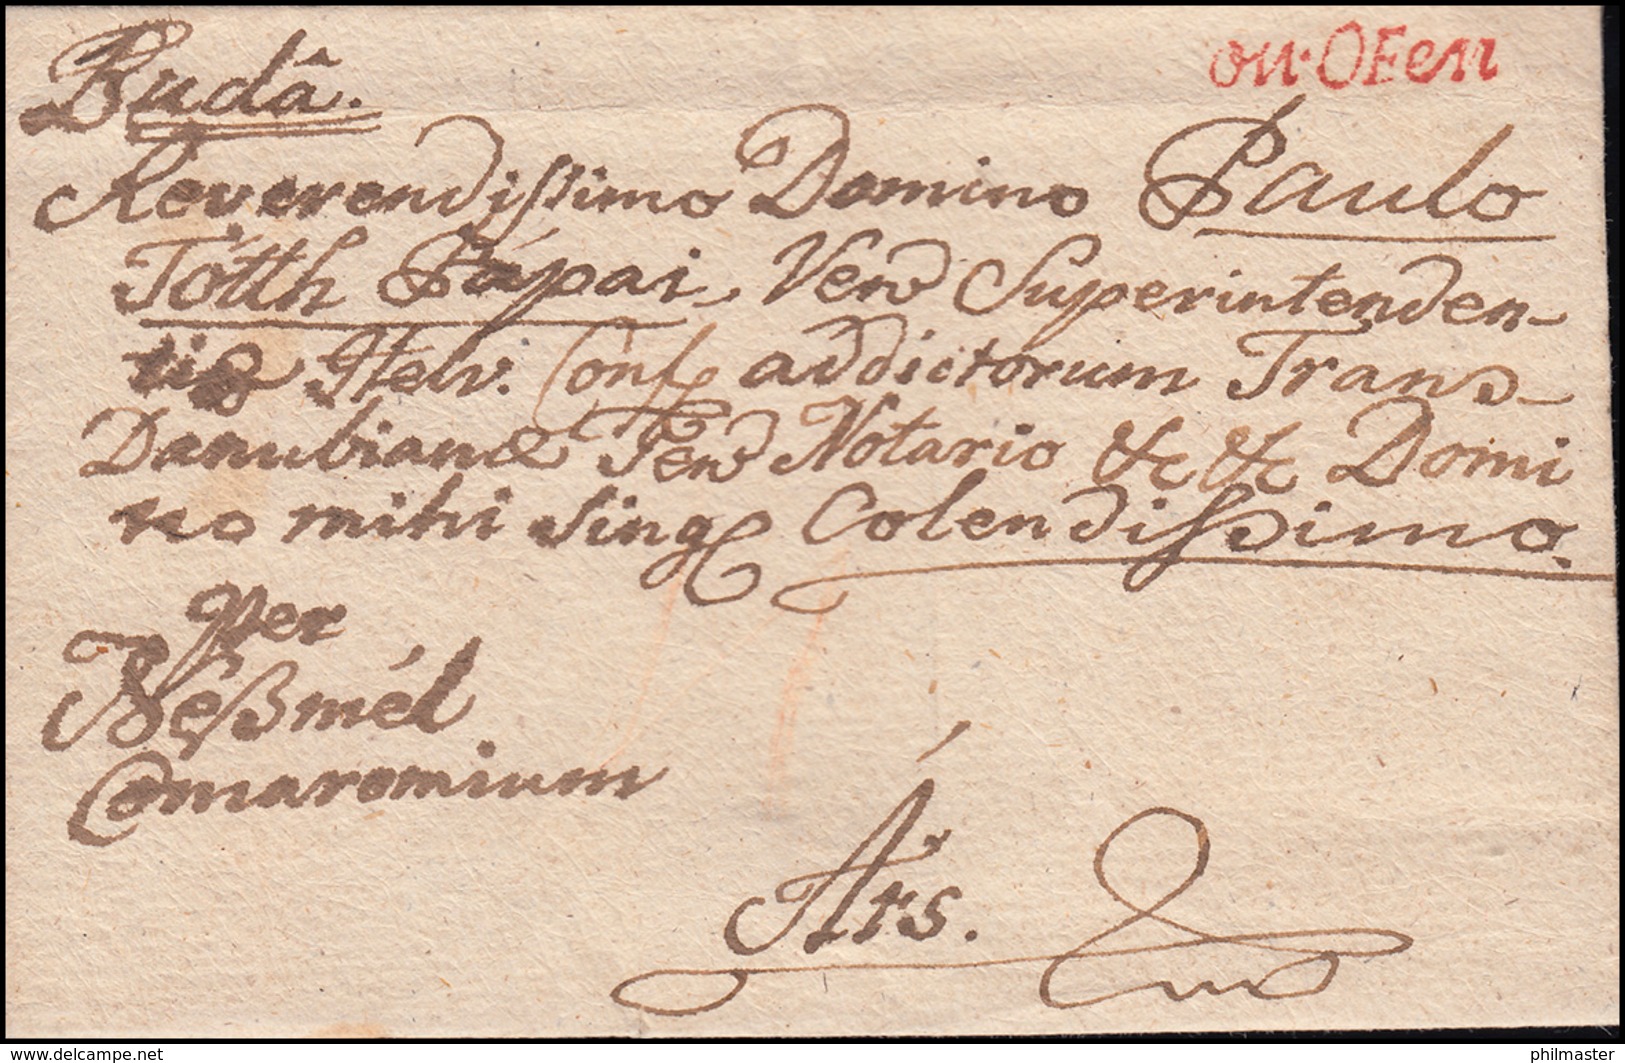 Budâ.
on·OFen
Reverendissimo Domino Paulo
Tótth Pápai, Vend Superintenden-
tiæ Helv. Conf. addictorum Trans-
Danubianæ Fend Notario &c &c Domi
no mihi sing Colendissimo.
Per
Néßmél
Comaromium
Árs.
delcampe.net
philmaster